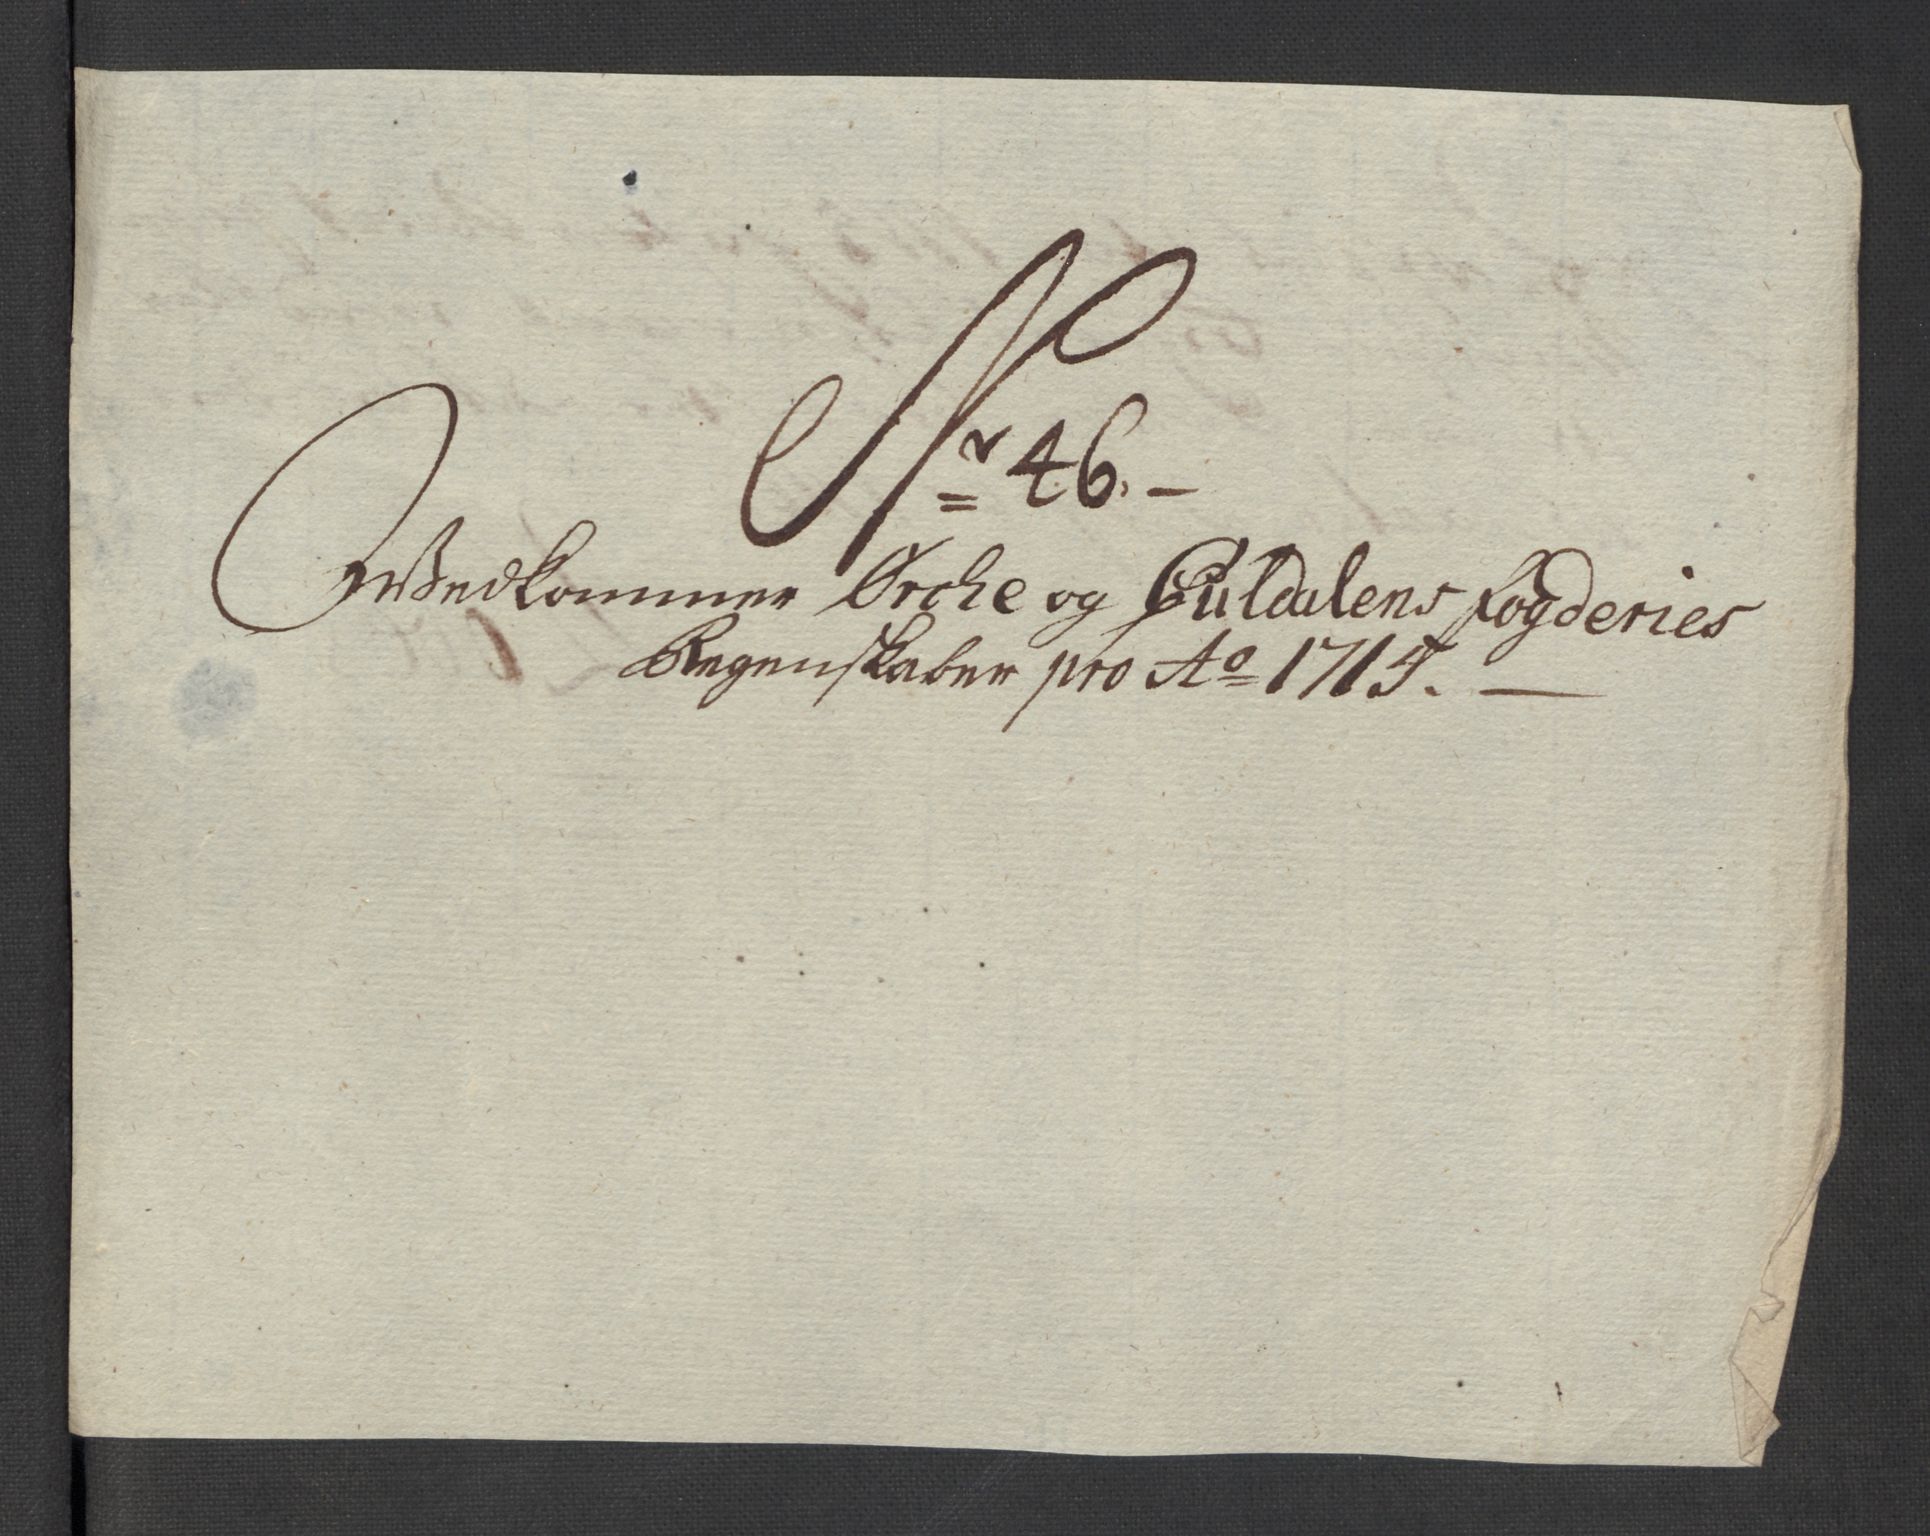 Nr 46. —
Wedkommer Ørche og Guldalens fogderies
Regenskaber pro Ao 1715. —